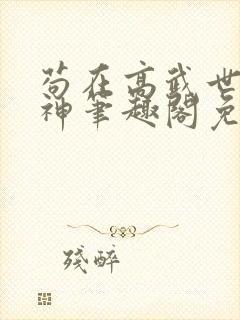 苟在高武世
神笔趣阁免
残醉